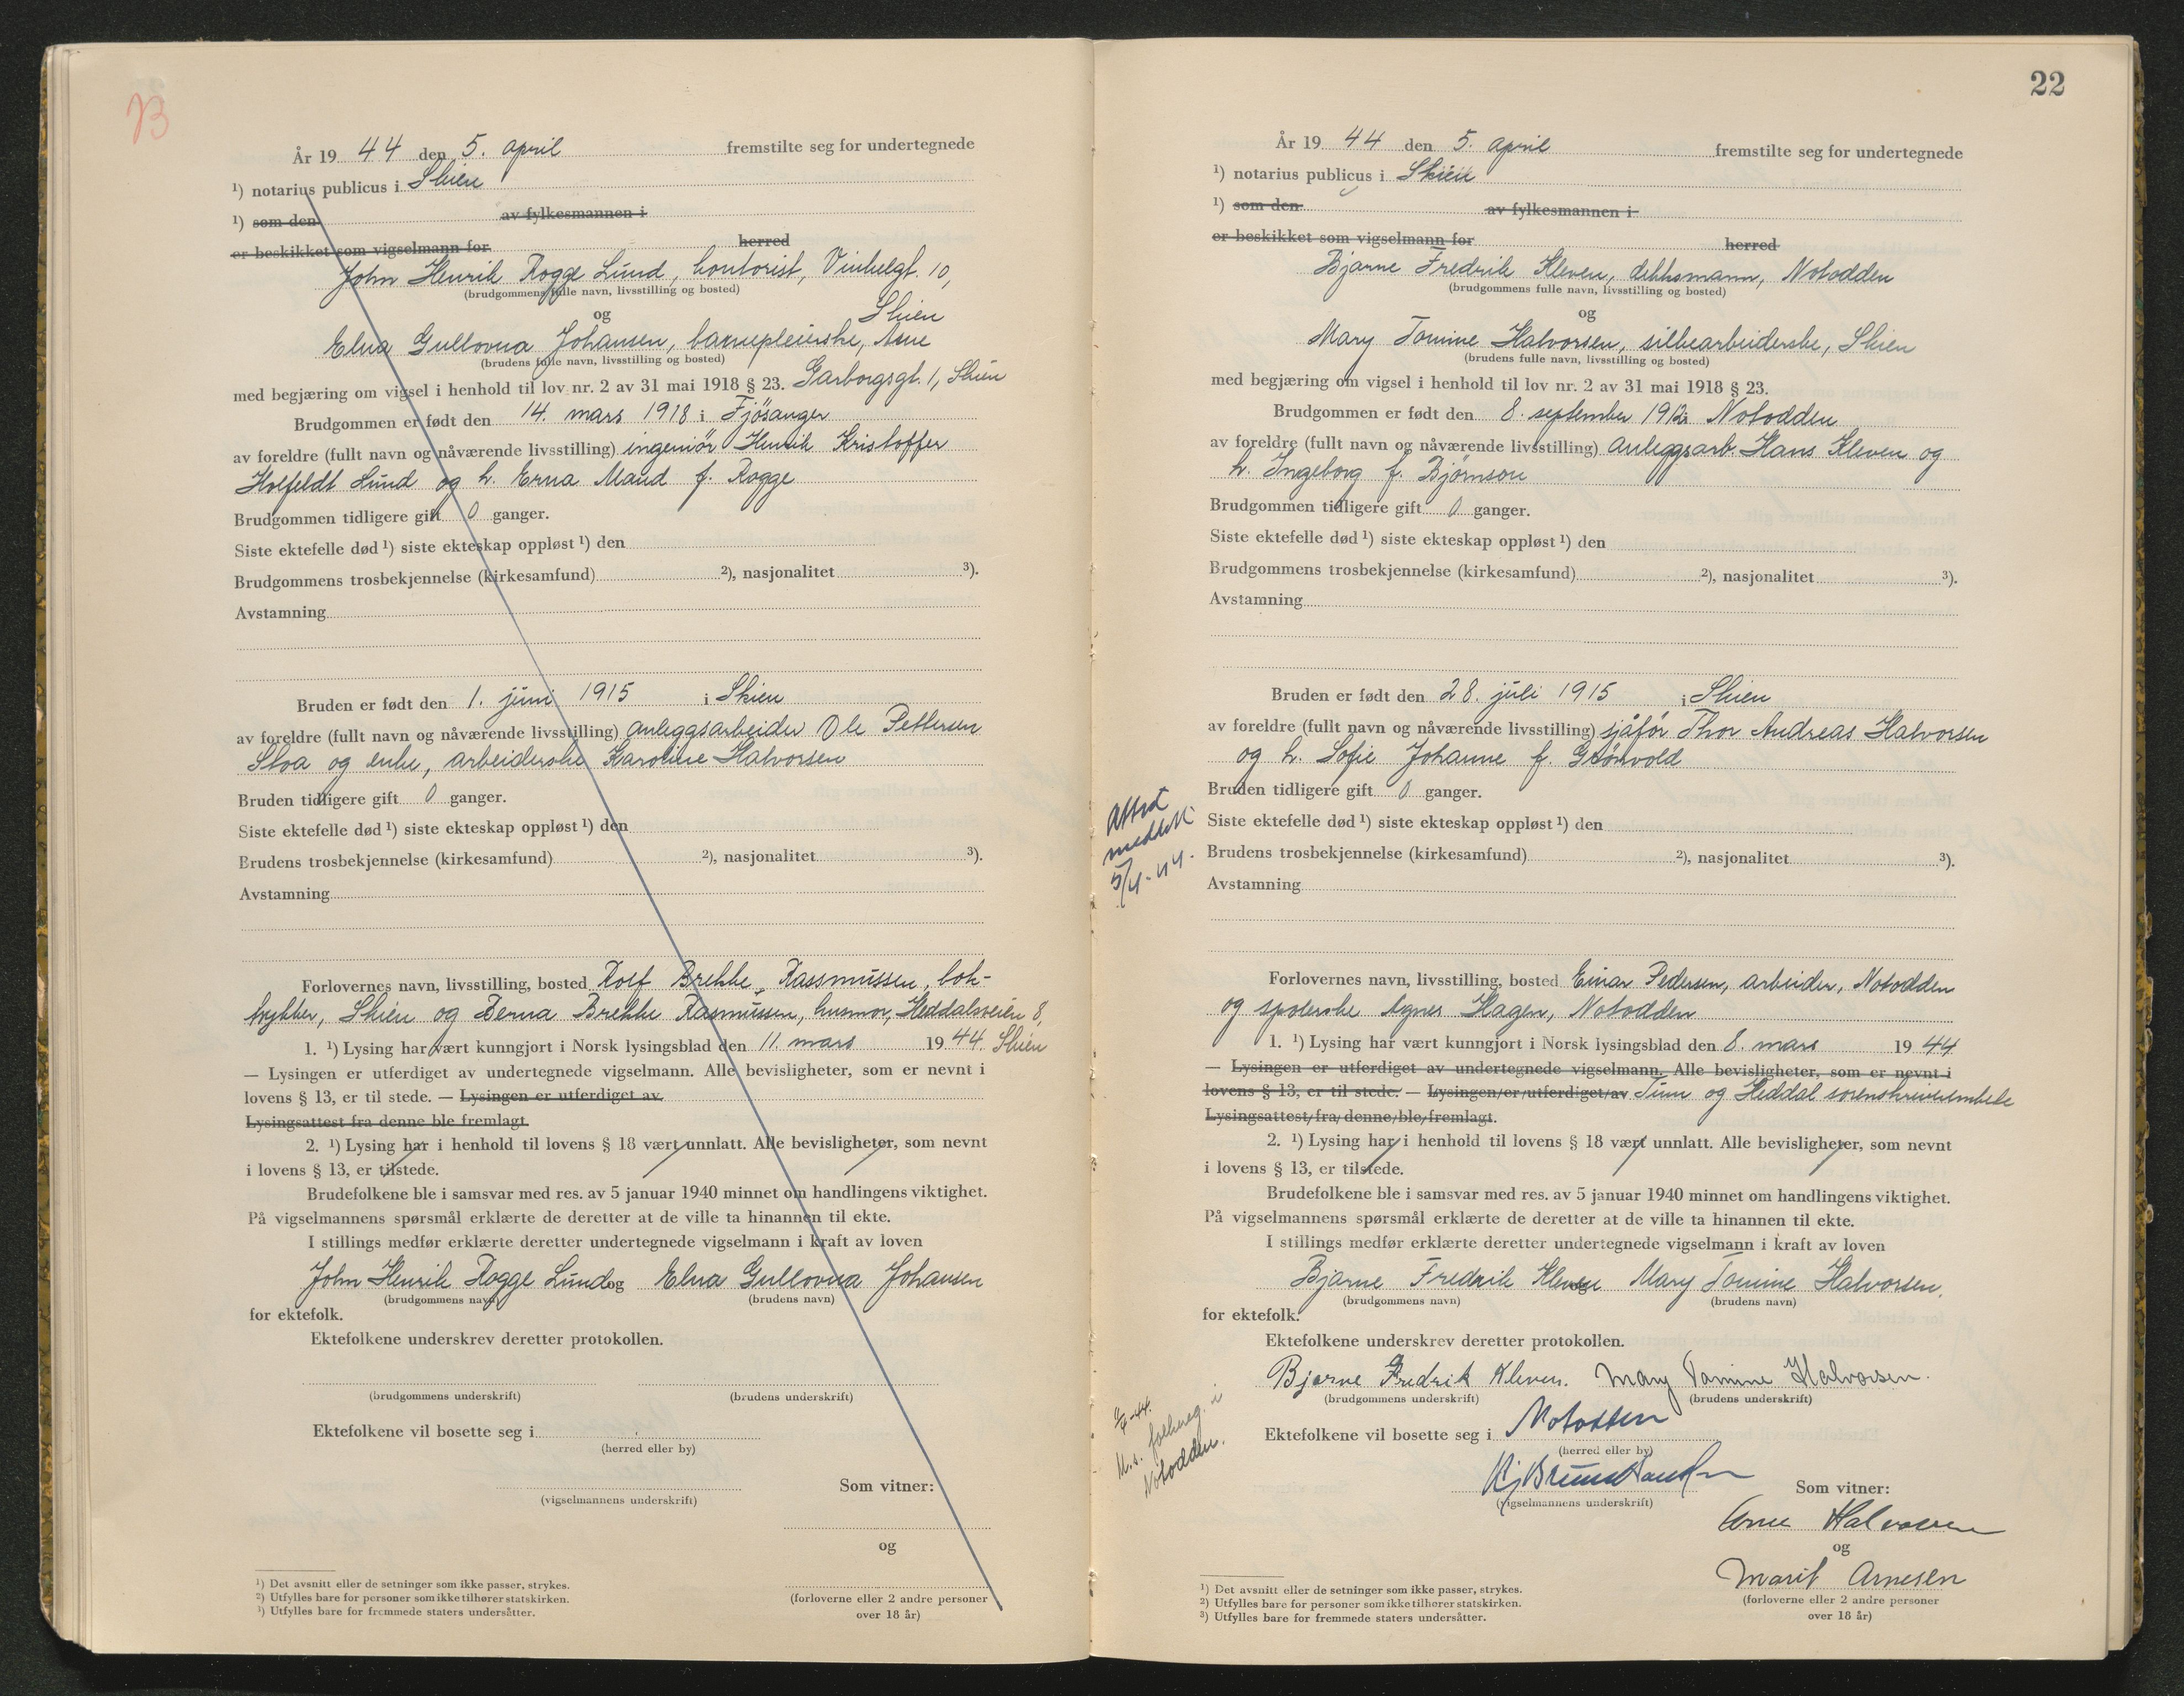 År 19 44 den 5. april fremstilte seg for undertegnede
¹) notarius publicus i Skien
¹) som den av fylkesmannen i
er beskikket som vigselmann for herred
John Henrik Rogge Lund, kontorist, Vinkelgt. 10,
(brudgommens fulle navn, livsstilling og bosted)
Skien
og
Elna Gullovna Johansen, barnepleierske, Arne
(brudens fulle navn, livsstilling og bosted)
med begjæring om vigsel i henhold til lov nr. 2 av 31 mai 1918 § 23. Garborgsgt. 1, Skien
Brudgommen er født den 14. mars 1918 i Fjösanger
av foreldre (fullt navn og nåværende livsstilling) ingeniör Henrik Kristoffer
Holfeldt Lund og h. Erna Maud f. Rogge
Brudgommen tidligere gift 0 ganger.
Siste ektefelle død ¹) siste ekteskap oppløst ¹) den
Brudgommens trosbekjennelse (kirkesamfund) ²), nasjonalitet ³).
Avstamning
Bruden er født den 1. juni 1915 i Skien
av foreldre (fullt navn og nåværende livsstilling) anleggsarbeider Ole Pettersen
Sloa og enke, arbeiderske Karoline Halvorsen
Bruden tidligere gift 0 ganger.
Siste ektefelle død ¹) siste ekteskap oppløst ¹) den
Brudens trosbekjennelse (kirkesamfund) ²), nasjonalitet ³).
Avstamning
Forlovernes navn, livsstilling, bosted Rolf Brekke Rassmussen, bok-
trykker, Skien og Berna Brekke Rasmussen, husmor, Heddalsveien 8,
1. ¹) Lysing har vært kunngjort i Norsk lysingsblad den 11. mars 19 44. Skien
— Lysingen er utferdiget av undertegnede vigselmann. Alle bevisligheter, som er nevnt i
lovens § 13, er til stede. — Lysingen er utferdiget av
Lysingsattest fra denne ble fremlagt
2. ¹) Lysing har i henhold til lovens § 18 vært unnlatt. Alle bevisligheter, som nevnt
i lovens § 13, er tilstede.
Brudefolkene ble i samsvar med res. av 5 januar 1940 minnet om handlingens viktighet.
På vigselmannens spørsmål erklærte de deretter at de ville ta hinannen til ekte.
I stillings medfør erklærte deretter undertegnede vigselmann i kraft av loven
John Henrik Rogge Lund og Elna Gullovna Johansen
(brudgommens navn) (brudens navn)
for ektefolk.
Ektefolkene underskrev deretter protokollen.
(brudgommens underskrift) (brudens underskrift)
Ektefolkene vil bosette seg i
(herred eller by)
Som vitner:
(vigselmannens underskrift)
og
(forloverne eller 2 andre personer
over 18 år)
¹) Det avsnitt eller de setninger som ikke passer, strykes.
²) Utfylles bare for personer som ikke tilhører statskirken.
³) Utfylles bare for fremmede staters undersåtter.
22
År 19 44 den 5. april fremstilte seg for undertegnede
¹) notarius publicus i Skien
¹) som den av fylkesmannen i
er beskikket som vigselmann for herred
Bjarne Fredrik Kleven, dekksmann, Notodden
(brudgommens fulle navn, livsstilling og bosted)
og
Mary Tomine Halvorsen, silkearbeiderske, Skien
(brudens fulle navn, livsstilling og bosted)
med begjæring om vigsel i henhold til lov nr. 2 av 31 mai 1918 § 23.
Brudgommen er født den 8. september 1912 i Notodden
av foreldre (fullt navn og nåværende livsstilling) anleggsarb. Hans Kleven og
h. Ingeborg f. Bjørnson
Brudgommen tidligere gift 0 ganger.
Siste ektefelle død ¹) siste ekteskap oppløst ¹) den
Brudgommens trosbekjennelse (kirkesamfund) ²), nasjonalitet ³).
Avstamning
Bruden er født den 28. juli 1915 i Skien
av foreldre (fullt navn og nåværende livsstilling) sjåfór Thor Andreas Halvorsen
og h. Sofie Johanne f. Grönvold
Bruden tidligere gift 0 ganger.
Attest
meddelt
5/4-44.
Siste ektefelle død ¹) siste ekteskap oppløst ¹) den
Brudens trosbekjennelse (kirkesamfund) ²), nasjonalitet ³).
Avstamning
Forlovernes navn, livsstilling, bosted Einar Pedersen, arbeider, Notodden
og spolerske Agnes Hagen, Notodden
1. ¹) Lysing har vært kunngjort i Norsk lysingsblad den 8. mars 19 44
— Lysingen er utferdiget av undertegnede vigselmann. Alle bevisligheter, som er nevnt i
lovens § 13, er til stede. — Lysingen er utferdiget av Tinn og Heddal sorenskriverembede
Lysingsattest fra denne ble fremlagt.
2. ¹) Lysing har i henhold til lovens § 18 vært unnlatt. Alle bevisligheter, som nevnt
i lovens § 13, er tilstede.
Brudefolkene ble i samsvar med res. av 5 januar 1940 minnet om handlingens viktighet.
På vigselmannens spørsmål erklærte de deretter at de ville ta hinannen til ekte.
I stillings medfør erklærte deretter undertegnede vigselmann i kraft av loven
Bjarne Fredrik Kleven og Mary Tomine Halvorsen.
(brudgommens navn) (brudens navn)
for ektefolk.
Ektefolkene underskrev deretter protokollen.
Bjarne Fredrik Kleven. Mary Tomine Halvorsen.
(brudgommens underskrift) (brudens underskrift)
M.s. folkereg. i
Notodden.
Ektefolkene vil bosette seg i Notodden
(herred eller by)
Som vitner:
(vigselmannens underskrift)
Arne Halvorsen
og
Marit Arnesen
(forloverne eller 2 andre personer
over 18 år)
¹) Det avsnitt eller de setninger som ikke passer, strykes.
²) Utfylles bare for personer som ikke tilhører statskirken.
³) Utfylles bare for fremmede staters undersåtter.